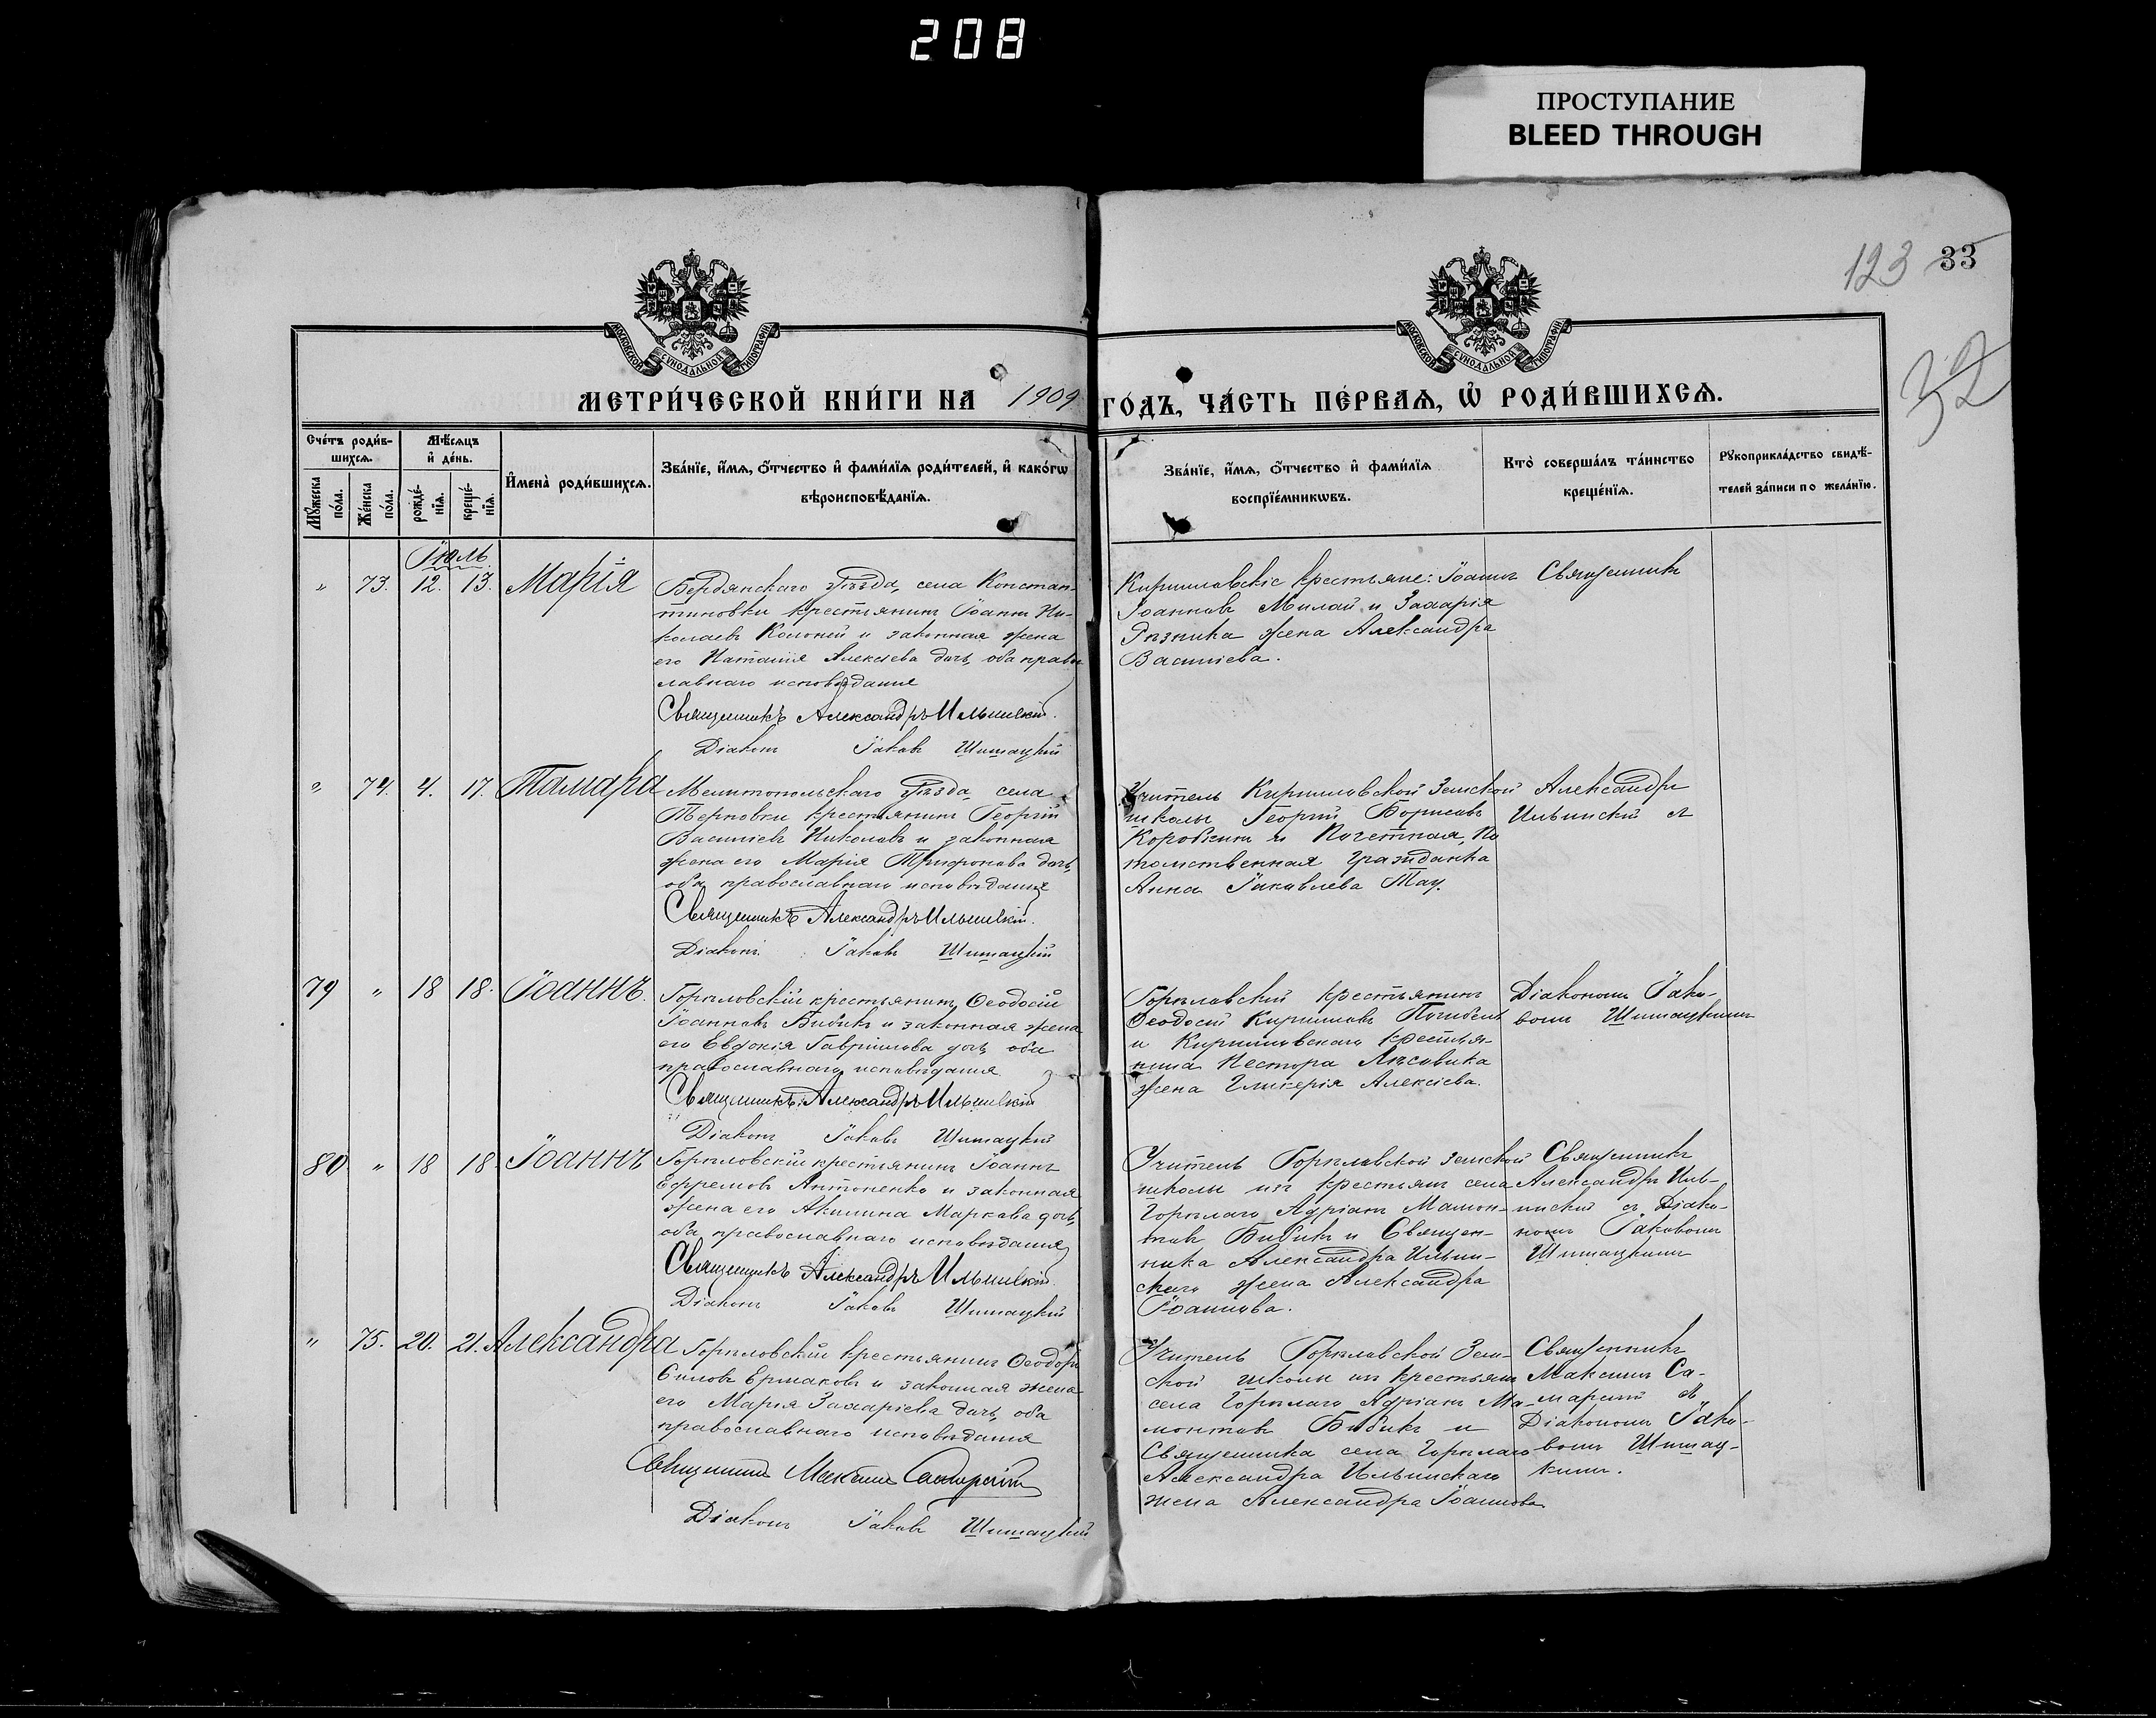 208
ПРОСТУПАНИЕ
BLEED THROUGH
123 33
32
МОСКОВСКОЙ СѴНОДАЛЬНОЙ ТИПОГРАФІИ
МОСКОВСКОЙ СѴНОДАЛЬНОЙ ТИПОГРАФІИ
МЕТРИ́ЧЕСКОЙ КНИ́ГИ НА 1909 ГО́ДЪ, ЧА́СТЬ ПЕ́РВАѦ, Ѡ҆ РОДИ́ВШИХСѦ.
Сче́тъ роди́в-
шихсѧ.
Мѣ́сѧцъ
и҆ де́нь.
Мꙋ́жеска по́ла.
Же́нска по́ла.
рожде́-
нїѧ.
креще́-
нїѧ.
И҆мена̀ роди́вшихсѧ.
Зва́нїе, и҆́мѧ, ѻ҆́тчество и҆ фами́лїѧ роди́телей, и҆ како́гѡ
вѣроисповѣ́данїѧ.
Зва́нїе, и҆́мѧ, ѻ҆́тчество и҆ фами́лїѧ
воспрїе́мникѡвъ.
Кто̀ соверша́лъ та́инство
креще́нїѧ.
Рꙋкоприкла́дство свидѣ́-
телей за́писи по жела́нїю.
Іюль
" 73. 12. 13. Марія
Бердянскаго уѣзда, села Констан-
тиновки крестьянинъ Іоаннъ Ни-
колаевъ и законная жена
его Наталія Алексіева дочь, оба право
славнаго исповѣданія
Священникъ Александръ Ильинскій.
Діаконъ Іаковъ Шишацкій
Кирилловскіе крестьяне: Іоаннъ
Іоанновъ Милай и Захарія
Рѣзника жена Александра
Василіева.
Священникъ
" 74. 4. 17. Тамара
Мелитопольскаго уѣзда, села
Терновки крестьянинъ Георгій
Василіевъ Николавъ и законная
жена его Марія Трифонова дочь,
оба православнаго исповѣданія
Священникъ Александръ Ильинскій.
Діаконъ Іаковъ Шишацкій
Учитель Кирилловской Земской
школы Георгій Борисовъ
Коробкинъ и Почетная, По
томственная Гражданка
Анна Іаковлева Тау.
Александръ
Ильинскій
79 " 18 18. Іоаннъ.
Горѣловскій крестьянинъ Ѳеодосій
Іоанновъ Бибикъ и законная жена
его Евдокія Гавріилова дочь оба
православнаго исповѣданія
Священникъ Александръ Ильинскій
Діаконъ Іаковъ Шишацкій
Горѣловскій крестьянинъ
Ѳеодосій Кирилловъ
и Кирилловскаго крестья-
нина Нестора Лѣсовика
жена Гликерія Алексіева.
Діакономъ Іако-
вомъ Шишацкимъ
80 " 18 18 Іоаннъ
Горѣловскій крестьянинъ Іоаннъ
Ефремовъ Антоненко и законная
жена его Акилина Маркова дочь,
оба православнаго исповѣданія
Священникъ Александръ Ильинскій.
Діаконъ Іаковъ Шишацкій
Учитель Горѣловской Земской
школы изъ крестьянъ села
Горѣлаго Адріанъ Мамон-
товъ Бибикъ и Священ-
ника Александра Ильин-
скаго жена Александра
Іоаннова.
Священникъ
Александръ Иль-
инскій съ Діако-
номъ Іаковомъ
Шишацкимъ
" 75. 20. 21. Александра
Горѣловскій крестьянинъ Ѳеодоръ
Силовъ Ермаковъ и законная жена
его Марія Захаріева дочь, оба
православнаго исповѣданія
Священникъ Максимъ Самарскій
Діаконъ Іаковъ Шишацкій
Учитель Горѣловской Зем-
ской школы изъ крестьянъ
села Горѣлаго Адріанъ Ма-
монтовъ Бибикъ и
Священника села Горѣлаго
Александра Ильинскаго
жена Александра Іоаннова.
Священникъ
Максимъ Са-
марскій съ
Діакономъ Іако-
вомъ Шишац-
кимъ.